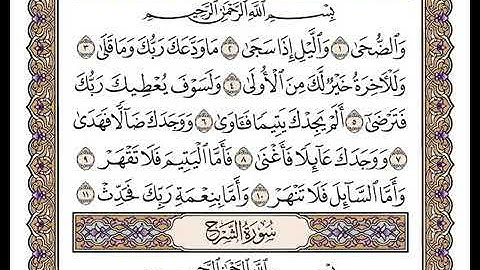 بِسْمِ ٱللَّهِ ٱلرَّحْمَٰنِ ٱلرَّحِيمِ
وَٱلضُّحَىٰ ١ وَٱلَّيْلِ إِذَا سَجَىٰ ٢ مَا وَدَّعَكَ رَبُّكَ وَمَا قَلَىٰ ٣
وَلَلْءَاخِرَةُ خَيْرٌ لَّكَ مِنَ ٱلْأُولَىٰ ٤ وَلَسَوْفَ يُعْطِيكَ رَبُّكَ
فَتَرْضَىٰٓ ٥ أَلَمْ يَجِدْكَ يَتِيمًا فَـَٔاوَىٰ ٦ وَوَجَدَكَ ضَآلًّا فَهَدَىٰ
٧ وَوَجَدَكَ عَآئِلًا فَأَغْنَىٰ ٨ فَأَمَّا ٱلْيَتِيمَ فَلَا تَقْهَرْ ٩
وَأَمَّا ٱلسَّآئِلَ فَلَا تَنْهَرْ ١٠ وَأَمَّا بِنِعْمَةِ رَبِّكَ فَحَدِّثْ ١١
سُورَةُ الشَّرْحِ
بِسْمِ ٱللَّهِ ٱلرَّحْمَٰنِ ٱلرَّحِيمِ